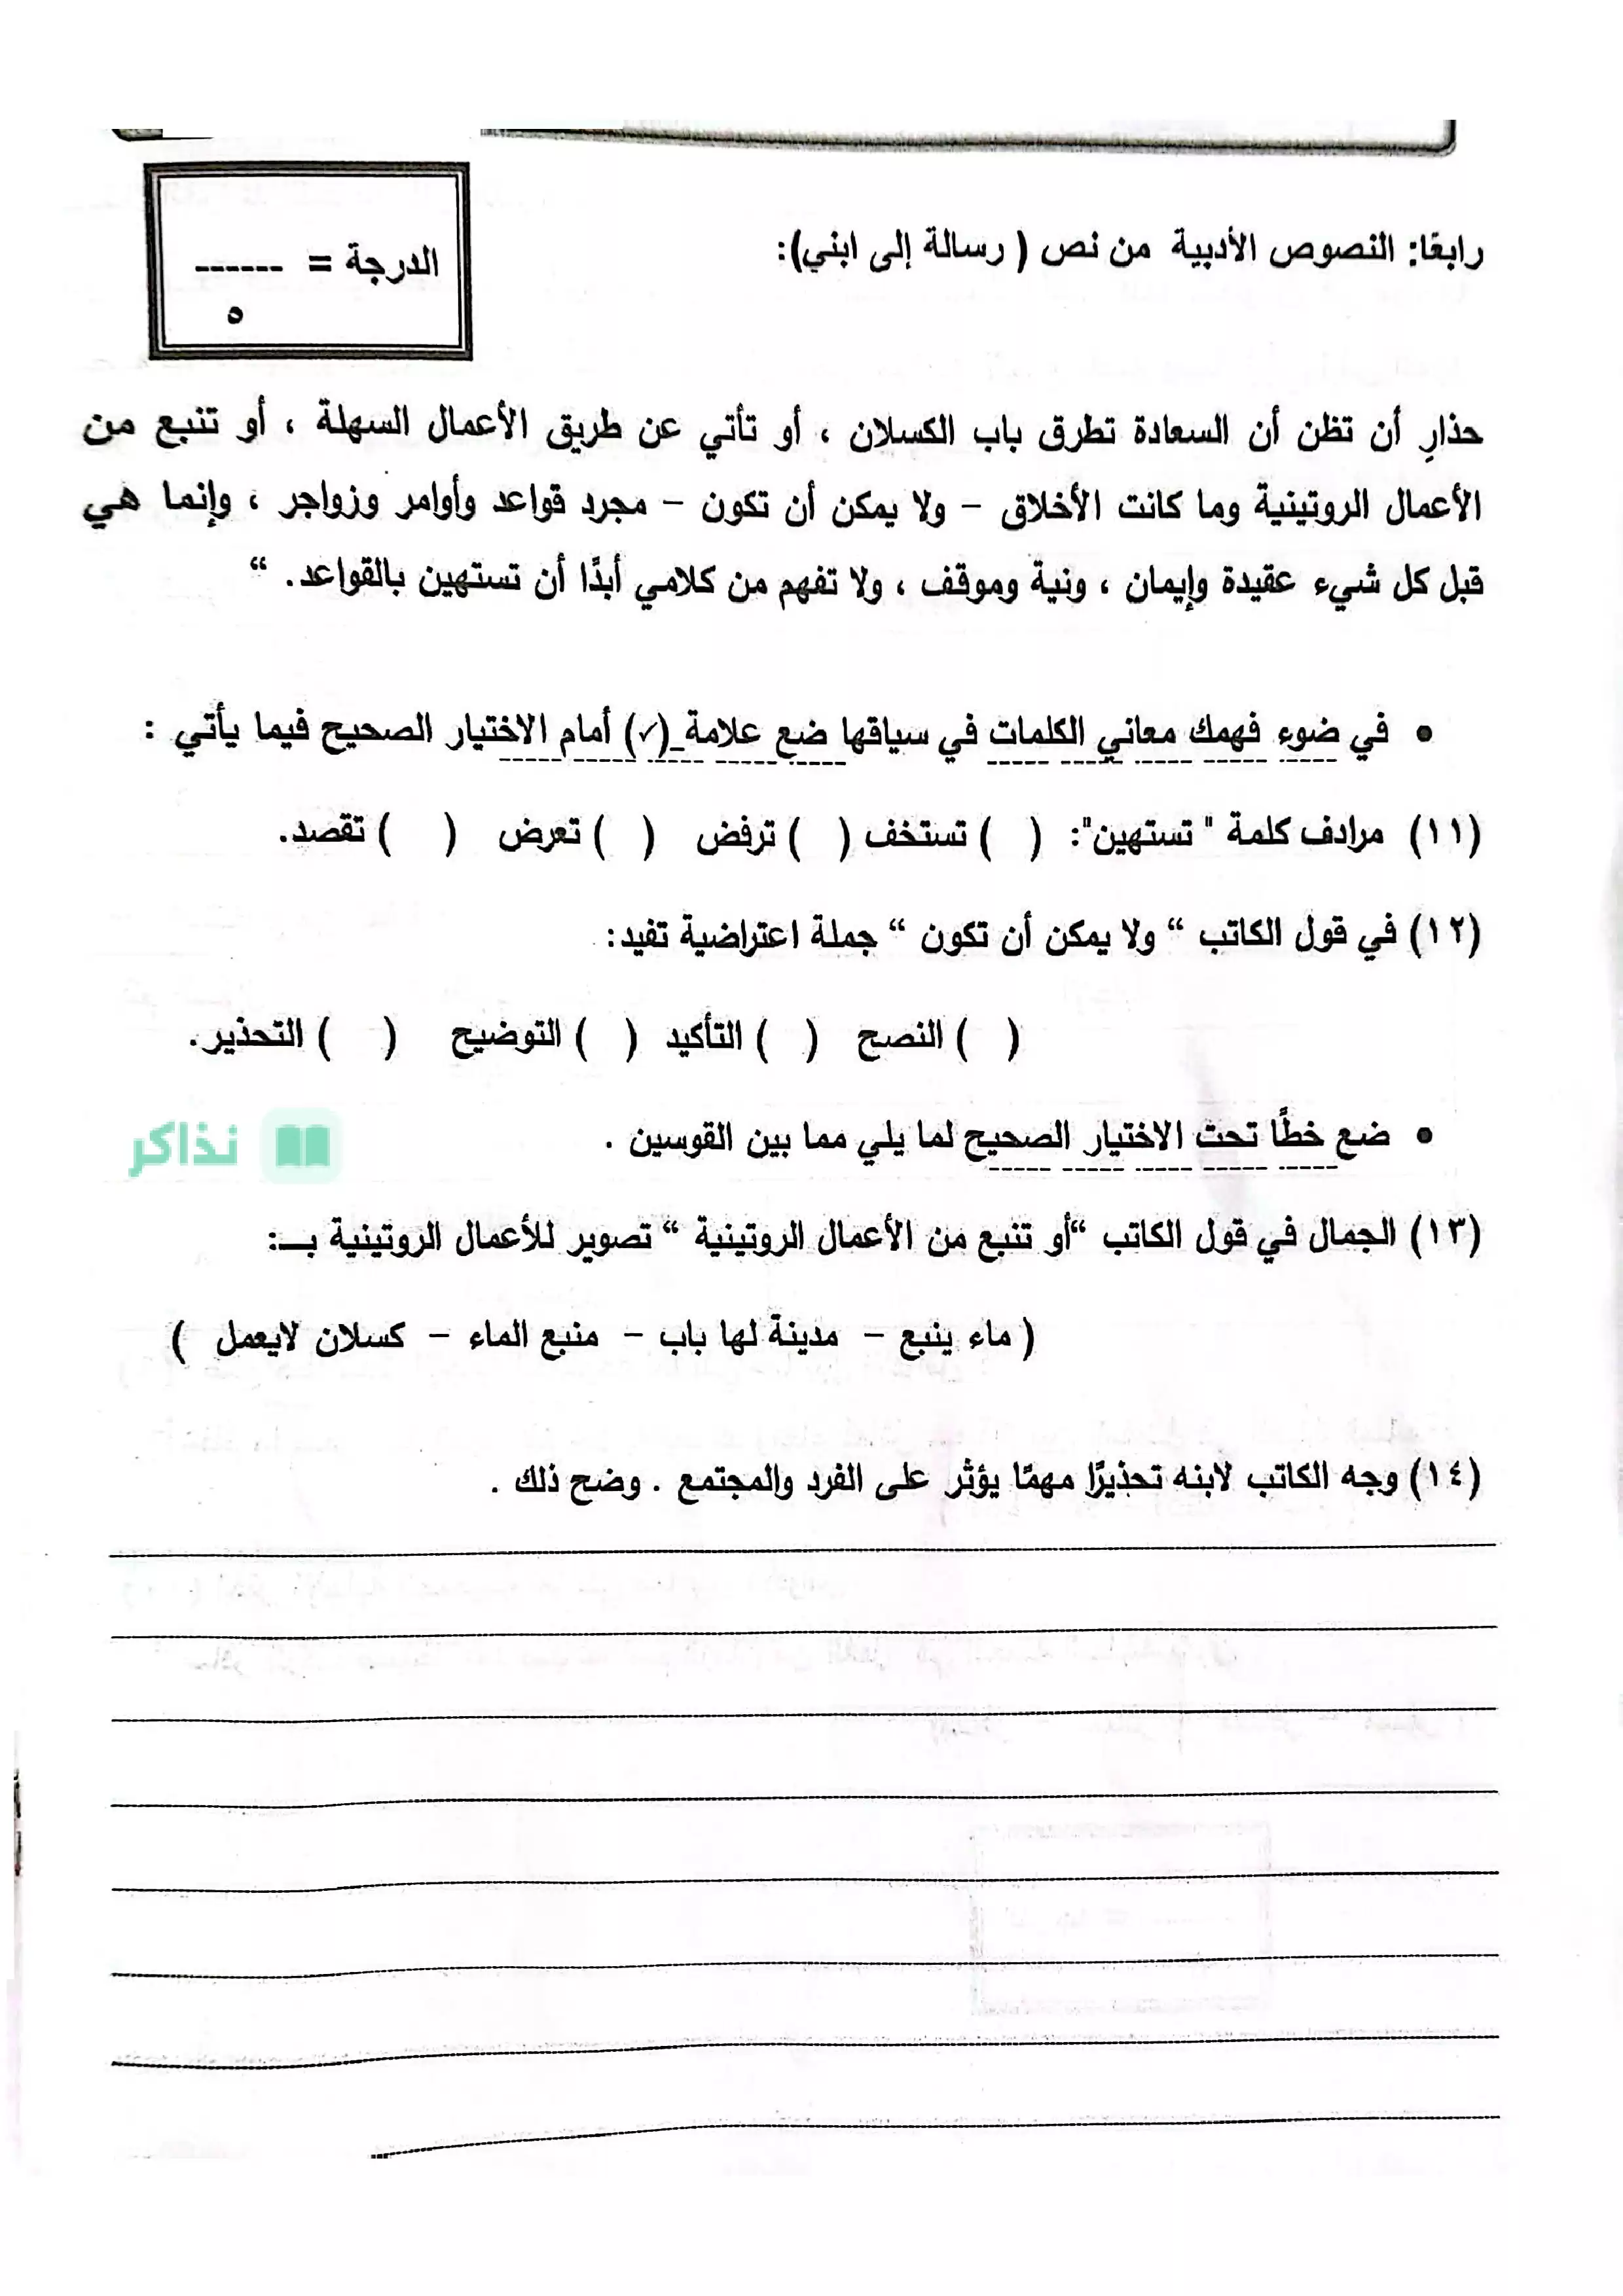 رابعًا: النصوص الأدبية من نص ( رسالة إلى ابني):
الدرجة = ------
٥
حذارِ أن تظن أن السعادة تطرق باب الكسلان ، أو تأتي عن طريق الأعمال السهلة ، أو تنبع من
الأعمال الروتينية وما كانت الأخلاق – ولا يمكن أن تكون – مجرد قواعد وأوامر وزواجر ، وإنما هي
قبل كل شيء عقيدة وإيمان ، ونية وموقف ، ولا تفهم من كلامي أبدًا أن تستهين بالقواعد. “
• في ضوء فهمك معاني الكلمات في سياقها ضع علامة (✓) أمام الاختيار الصحيح فيما يأتي :
(١١) مرادف كلمة " تستهين": ( ) تستخف ( ) ترفض ( ) تعرض ( ) تقصد.
(١٢) في قول الكاتب “ ولا يمكن أن تكون “ جملة اعتراضية تفيد:
( ) النصح ( ) التأكيد ( ) التوضيح ( ) التحذير.
نذاكر
• ضع خطًا تحت الاختيار الصحيح لما يلي مما بين القوسين .
(١٣) الجمال في قول الكاتب “أو تنبع من الأعمال الروتينية “ تصوير للأعمال الروتينية بـــ:
( ماء ينبع – مدينة لها باب – منبع الماء – كسلان لايعمل )
(١٤) وجه الكاتب لابنه تحذيرًا مهمًا يؤثر على الفرد والمجتمع . وضح ذلك .